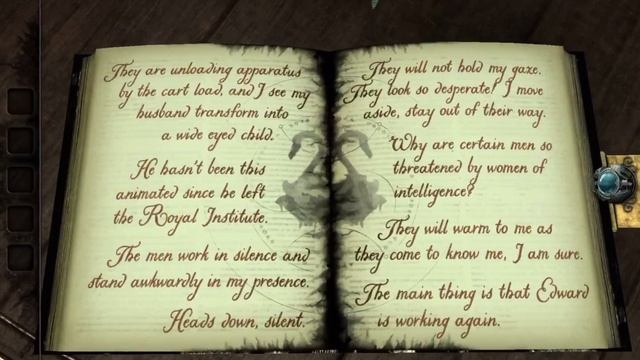 They are unloading apparatus
by the cart load, and I see my
husband transform into
a wide eyed child.
He hasn't been this
animated since he left
the Royal Institute.
The men work in silence and
stand awkwardly in my presence.
Heads down, silent.
They will not hold my gaze.
They look so desperate! I move
aside, stay out of their way.
Why are certain men so
threatened by women of
intelligence?
They will warm to me as
they come to know me, I am sure.
The main thing is that Edward
is working again.